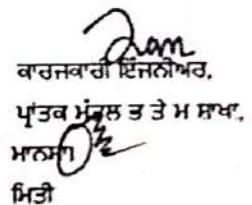 ਕਾਰਜਕਾਰੀ ਇੰਜਨੀਅਰ,
ਪ੍ਰਾਂਤਕ ਮੰਡਲ ਭ ਤੇ ਮ ਸ਼ਾਖਾ,
ਮਾਨਸਾ।
ਮਿਤੀ